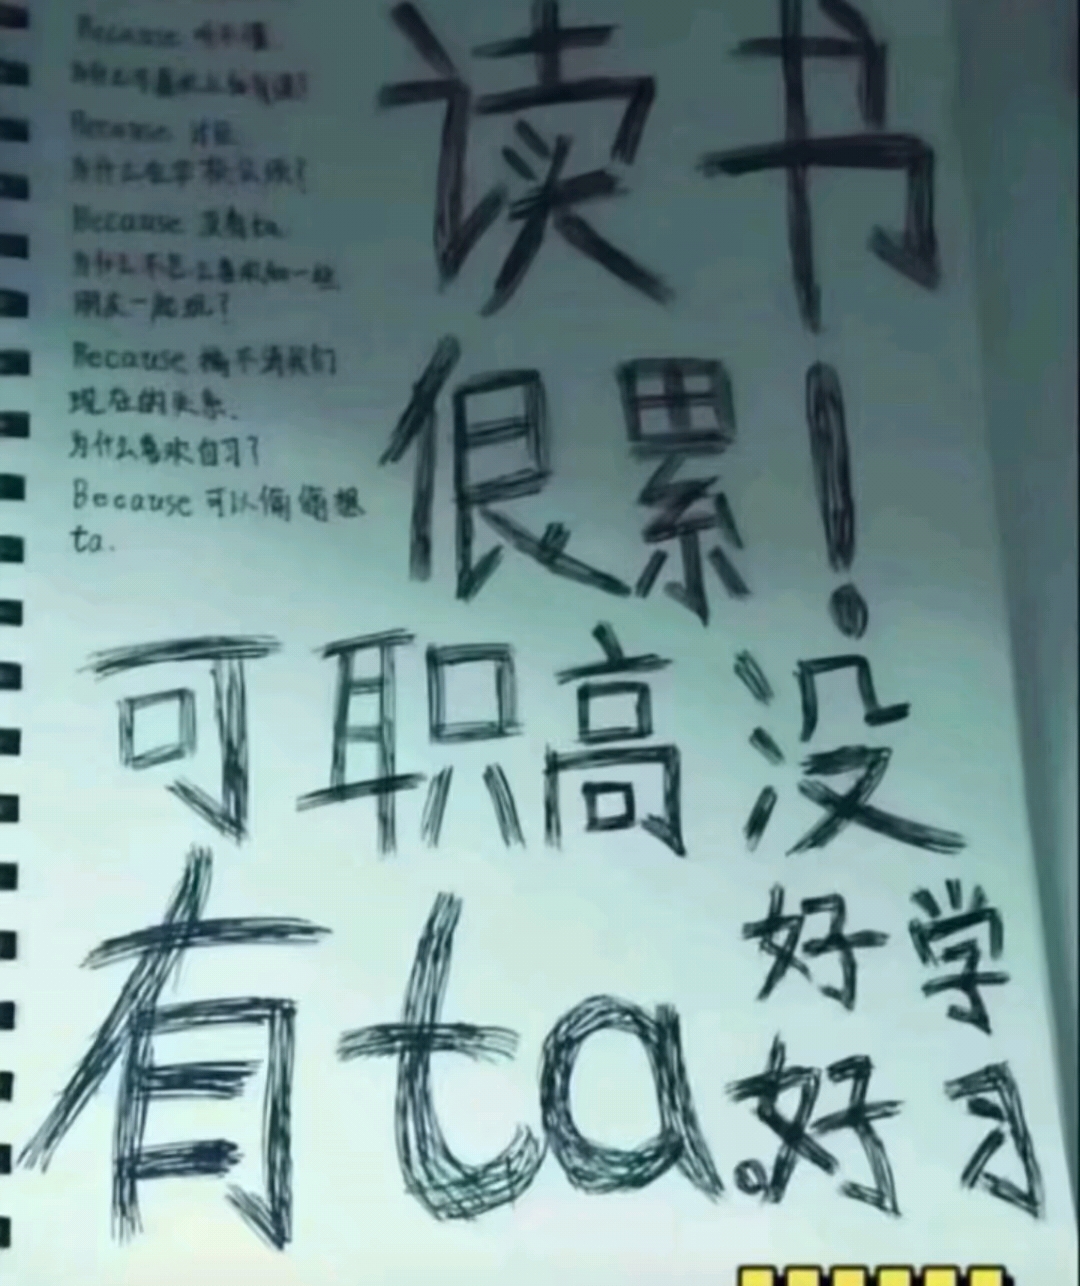 Because 听不懂
为什么不喜欢上如何课?
Because 讨厌
为什么在学校么烦?
Because 没有ta
为什么不怎么喜欢和一些
朋友一起玩?
Because 搞不清我们
现在的关系.
为什么喜欢自习?
Because 可以偷偷想
ta.
读书
很累!
可职高没
有ta。
好学
好习